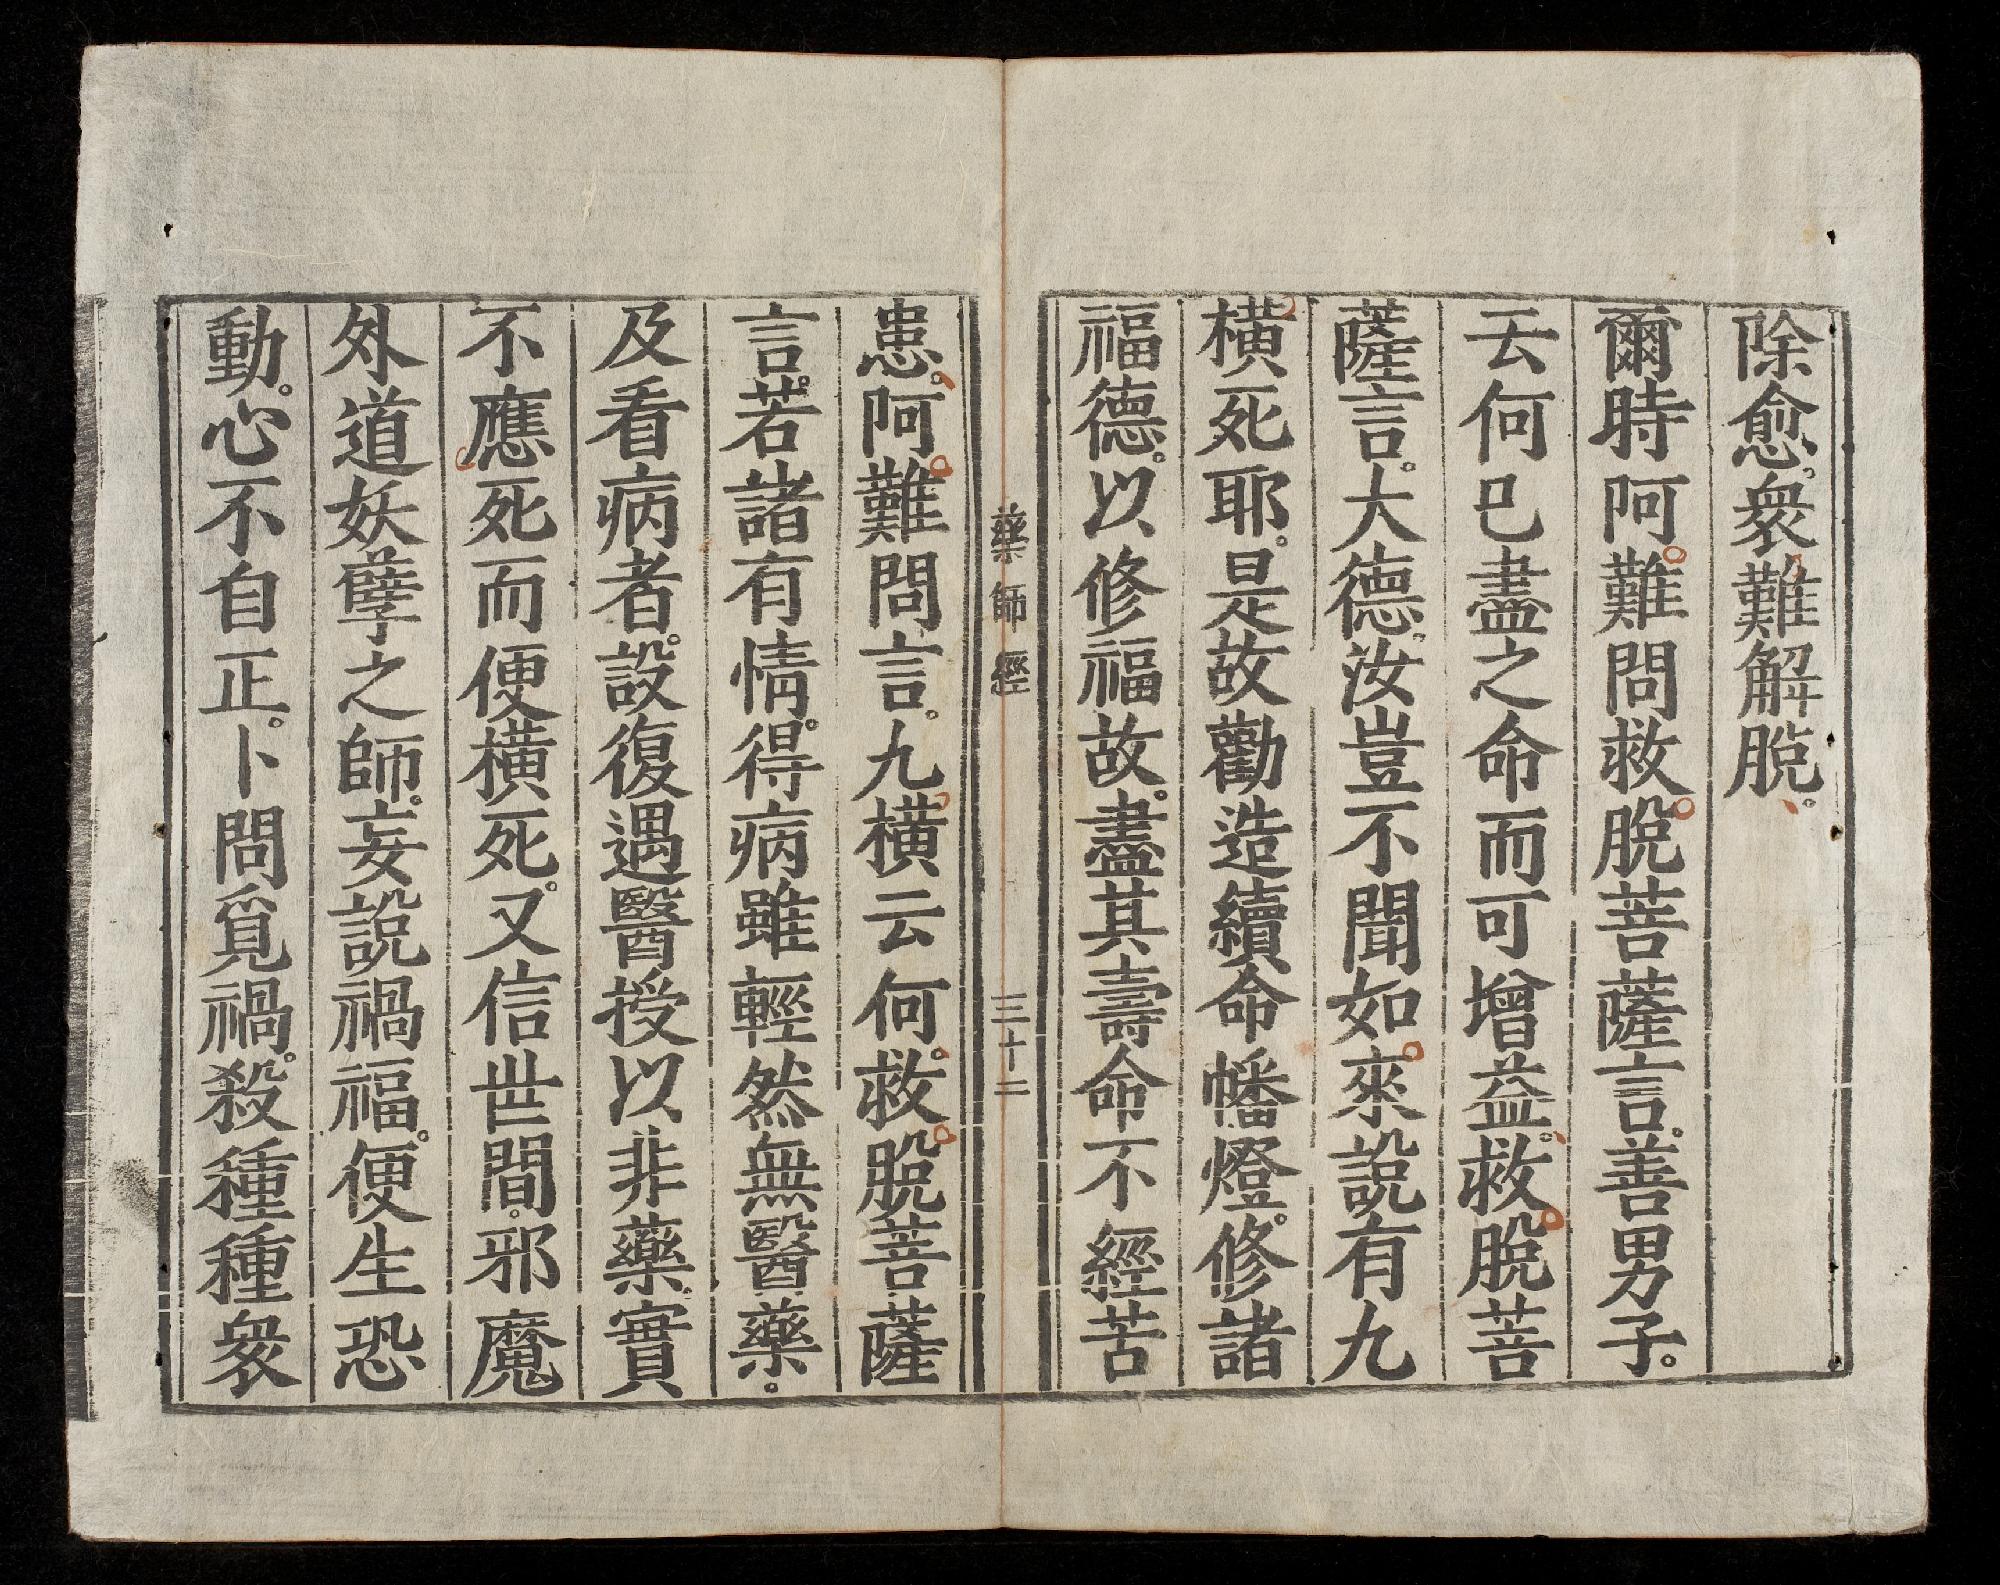 除愈。衆難解脫。
爾時阿難問救脫菩薩言。善男子。
云何已盡之命而可增益。救脫菩
薩言。大德。汝豈不聞如來說有九
橫死耶。是故勸造續命幡燈。修諸
福德。以修福故。盡其壽命不經苦
藥師經 三十二
患。阿難問言。九橫云何。救脫菩薩
言。若諸有情。得病雖輕。然無醫藥。
及看病者。設復遇醫授以非藥。實
不應死而便橫死。又信世間。邪魔
外道妖孽之師。妄說禍福。便生恐
動。心不自正。卜問覓禍。殺種種衆